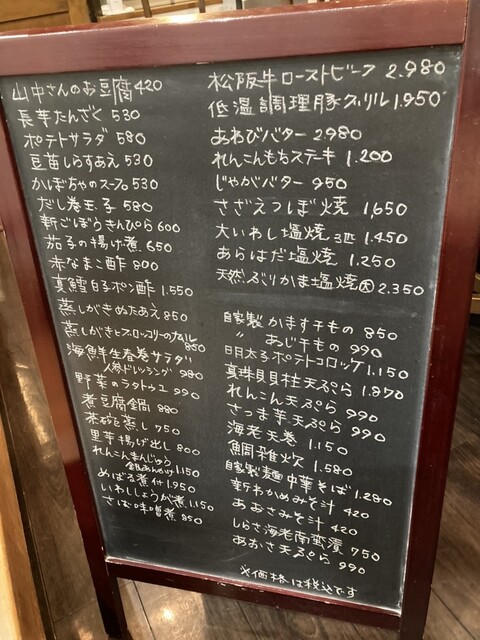 山中さんのお豆腐 420
長芋たんざく 530
ポテトサラダ 580
豆苗しらすあえ 530
かぼちゃのスープ 530
だし巻玉子 580
新ごぼうきんぴら 600
茄子の揚げ煮 650
赤なまこ酢 800
真鱈白子ポン酢 1.550
蒸しがきぬたあえ 850
蒸しがきとブロッコリーのナムル 850
海鮮生春巻サラダ
人参ドレッシング 980
野菜のラタトゥユ 990
煮豆腐鍋 880
茶碗蒸し 750
里芋揚げ出し 800
れんこんまんじゅう
銀あんかけ 1.150
めばる煮付 1.950
いわししょうが煮 1.150
さば味噌煮 850
松阪牛ローストビーフ 2.980
低温調理豚グリル 1.950
あわびバター 2.980
れんこんもちステーキ 1.200
じゃがバター 950
さざえつぼ焼 1,650
大いわし塩焼 3匹 1.450
あらはだ塩焼 1.250
天然ぶりかま塩焼 大 2.350
自家製かます干もの 850
〃 あじ干もの 990
明太子ポテトコロッケ 1.150
真珠貝貝柱天ぷら 1.870
れんこん天ぷら 990
さつま芋天ぷら 990
海老天巻 1.150
鯛雑炊 1.580
自家製麺中華そば 1.280
新わかめみそ汁 420
あおさみそ汁 420
しらさ海老南蛮漬 750
あおさ天ぷら 990
※価格は税込です